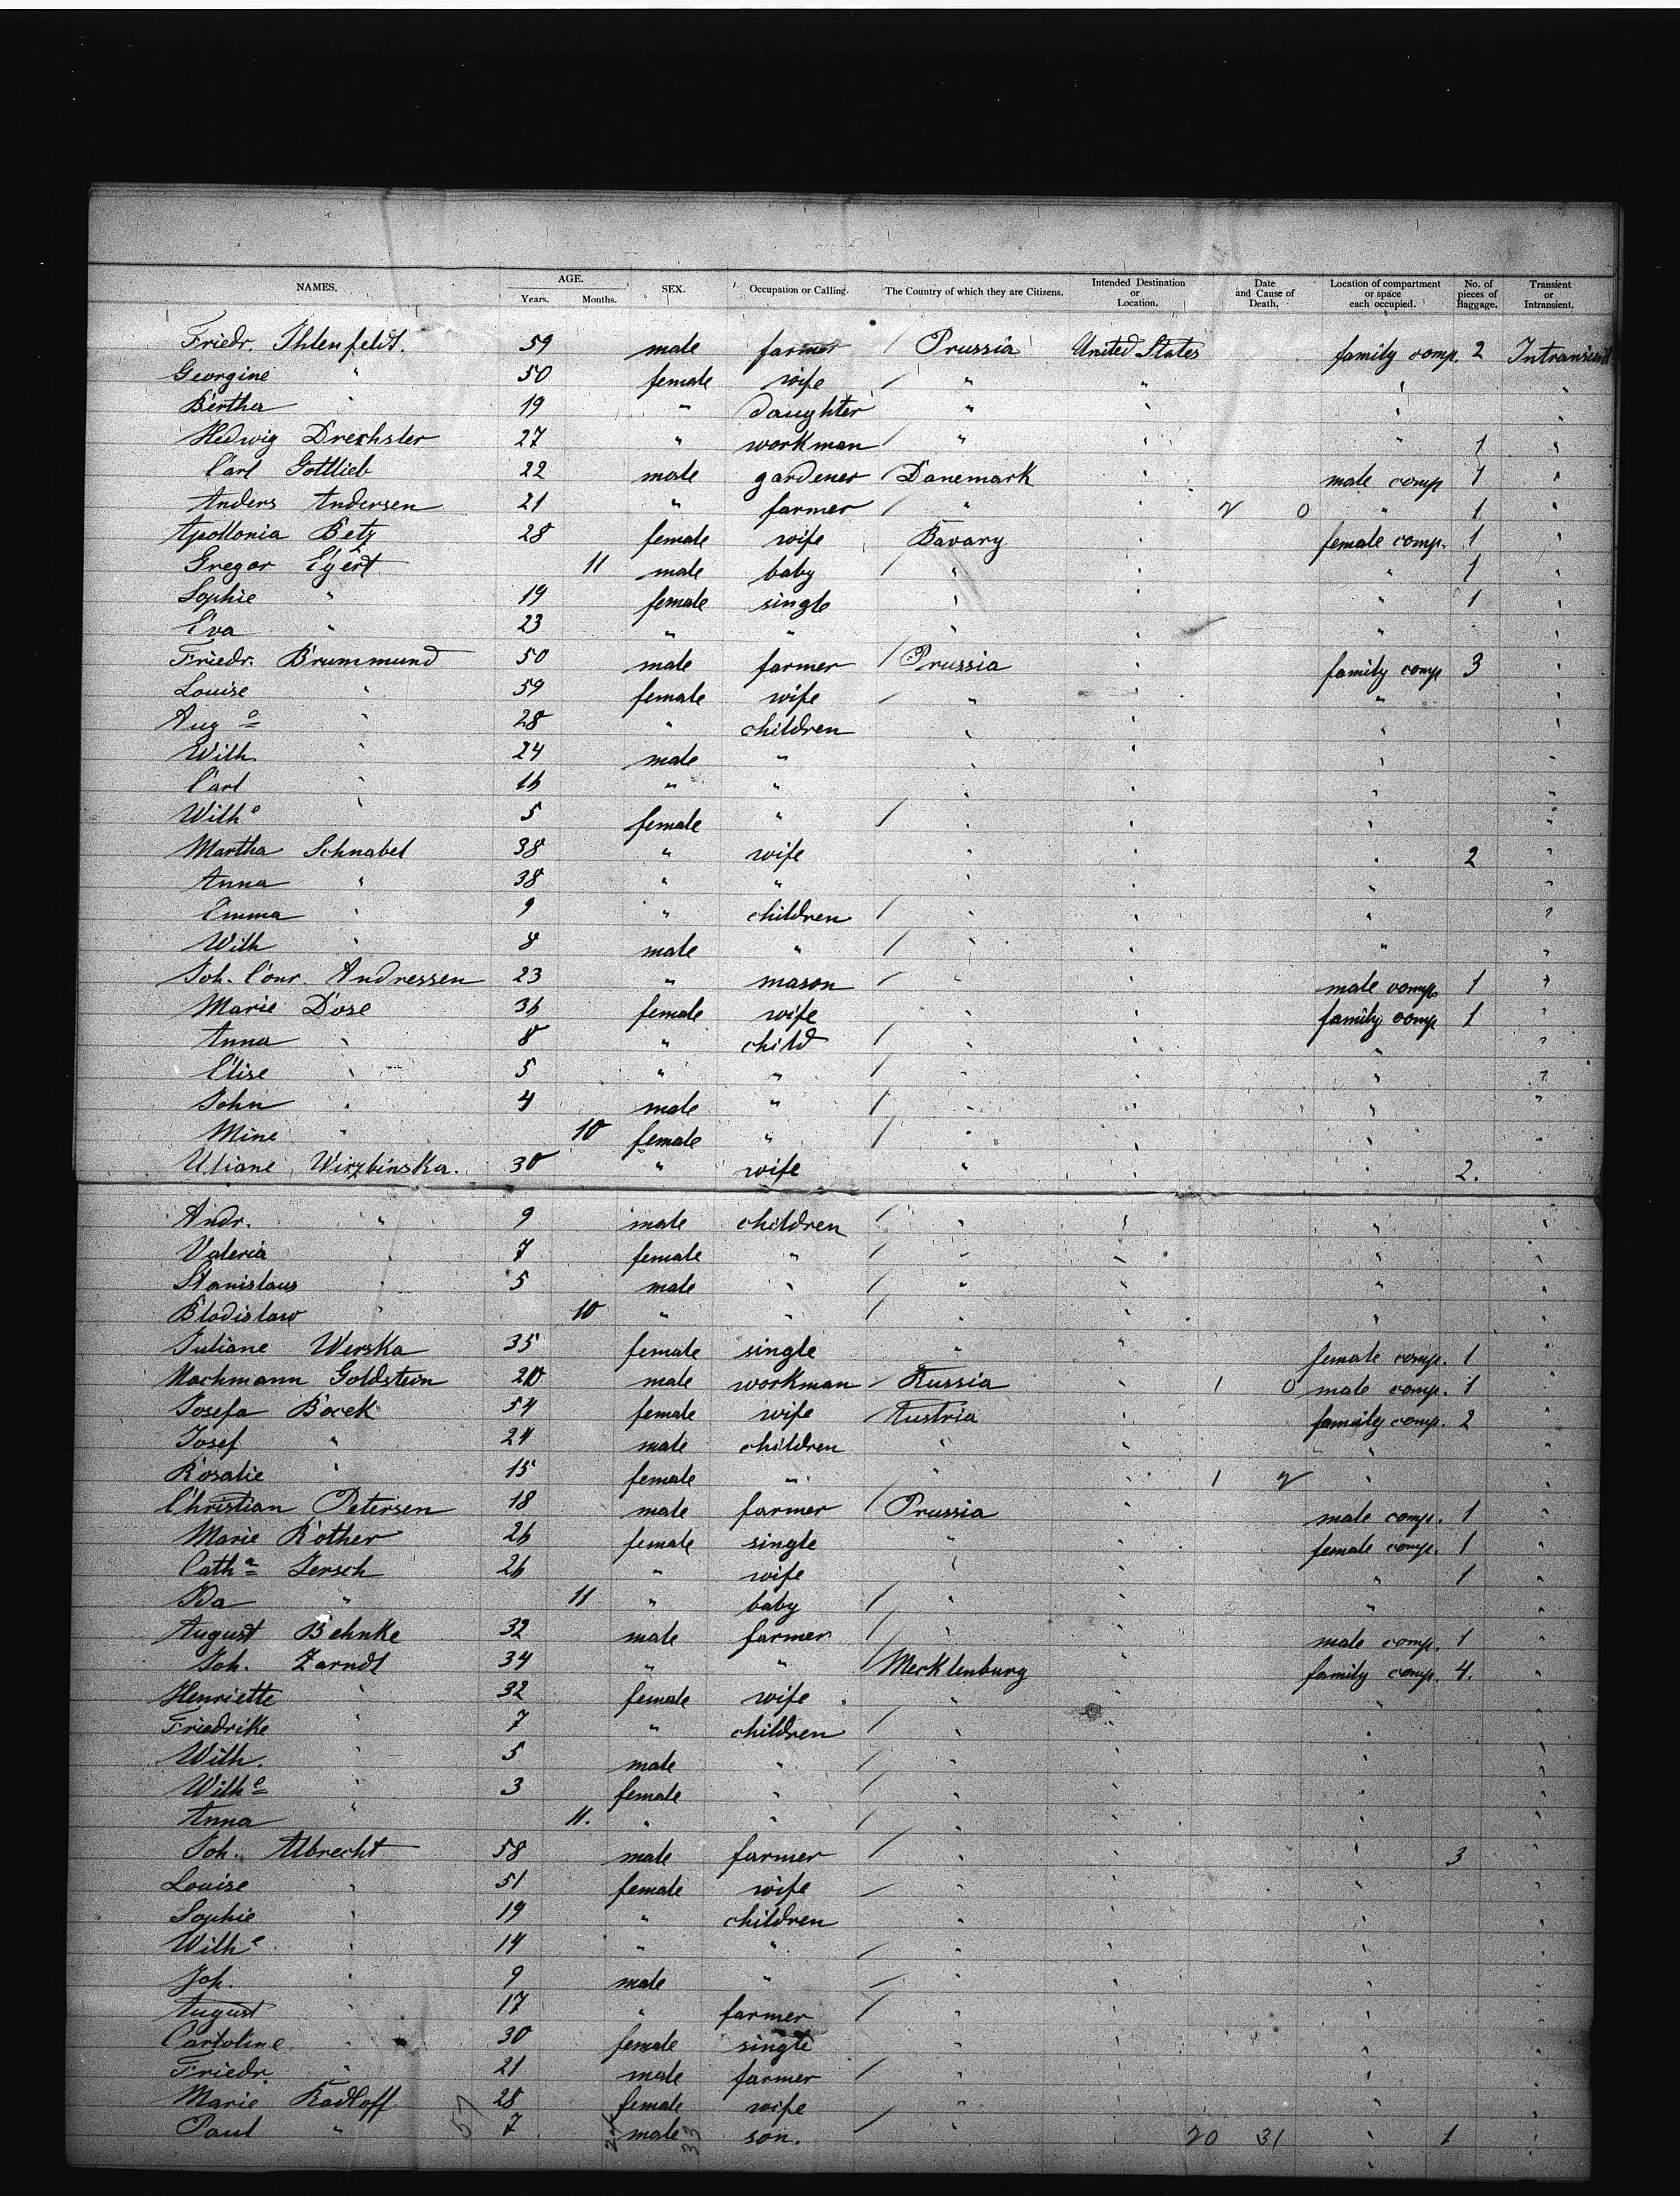 NAMES. AGE. SEX. Occupation or Calling. The Country of which they are Citizens. Intended Destination or Location. Date and Cause of Death. Location of compartment or space each occupied. No. of pieces of Baggage. Transient or Intransient.
Years. Months.
Friedr. Ihlenfeldt. 59 male farmer / Prussia United States family comp. 2 Intransient
Georgine " 50 female wife / " " " "
Bertha " 19 " daughter " " " "
Hedwig Drechsler 27 " workman / " " " 1 "
Carl Gottlieb 22 male gardener / Danemark " male comp 1 "
Anders Andersen 21 " farmer / " " 2 0 " 1 "
Apollonia Betz 28 female wife Bavary " female comp. 1 "
Gregor Eyert 11 male baby / " " " 1 "
Sophie " 19 female single " " " 1 "
Eva " 23 " " " " " "
Friedr. Brummund 50 male farmer / Prussia " family comp 3 "
Louise " 59 female wife / " " " "
Aug e " 28 " children " " " "
Wilh. " 24 male " " " " "
Carl " 16 " " " " " "
Wilh e " 5 female " / " " " "
Martha Schnabel 38 " wife " " " 2 "
Anna " 38 " " " " " "
Emma " 9 " children / " " " "
Wilh " 8 male " / " " " "
Joh. Conr. Andressen 23 " mason / " " male comp. 1 "
Marie Dose 36 female wife " " family comp 1 "
Anna " 8 " child / " " " "
Elise " 5 " " / " " " "
John " 4 male " / " " " "
Mine " 10 female " / " " " "
Uliane Wirzbinska. 30 " wife " " " 2. "
Andr. " 9 male children / " " " "
Valeria " 7 female " / " " " "
Stanislaus " 5 male " / " " " "
Bladislaw " 10 " " / " " " "
Juliane Werska 35 female single " " female comp. 1 "
Nachmann Goldstein 20 male workman / Russia " 1 0 male comp. 1 "
Josefa Bocek 54 female wife Austria " family comp. 2 "
Josef " 24 male children " " " "
Rosalie " 15 female " " " 1 2 " "
Christian Petersen 18 male farmer / Prussia " male comp. 1 "
Marie Rother 26 female single " " female comp. 1 "
Cath a Jersch 26 " wife " " " 1 "
Ida " 11 " baby / " " " "
August Behnke 32 male farmer / " " male comp. 1 "
Joh. Zarndt 34 " " / Mecklenburg " family comp. 4. "
Henriette " 32 female wife " " " "
Friedrike " 7 " children / " " " "
Wilh. " 5 male " / " " " "
Wilh e " 3 female " / " " " "
Anna " 11. " " / " " " "
Joh. Albrecht 58 male farmer / " " " 3 "
Louise " 51 female wife / " " " "
Sophie " 19 " children " " " "
Wilh e " 14 " " / " " " "
Joh. " 9 male " / " " " "
August " 17 " farmer / " " " "
Cartoline " 30 female single " " " "
Friedr. " 21 male farmer / " " " "
Marie Radloff 28 female wife " " " "
Paul " 7 male son. / " " 20 31 " 1 "
57 24 33